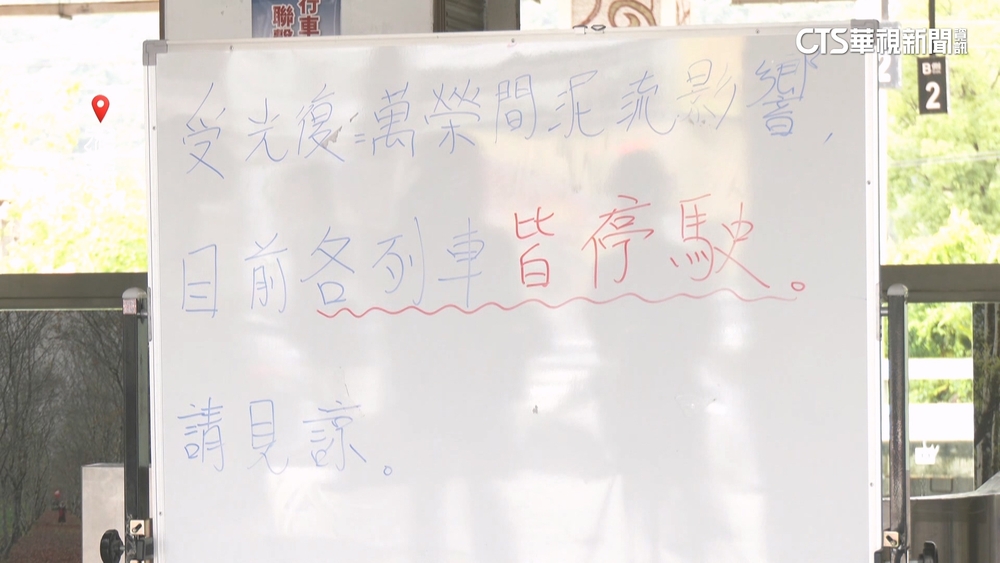 行車
聯繫
CTS華視新聞資訊
B
2
2
受光復萬榮間泥流影響,
目前各列車皆停駛。
請見諒。